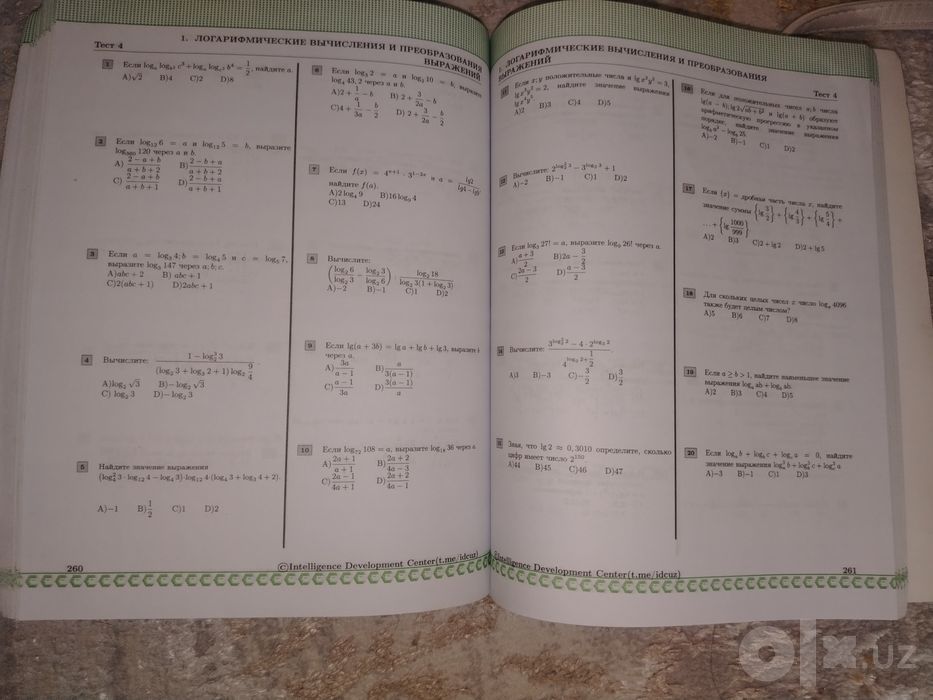 Тест 4
1. ЛОГАРИФМИЧЕСКИЕ ВЫЧИСЛЕНИЯ И ПРЕОБРАЗОВАНИЯ
ВЫРАЖЕНИЙ
1 Если
найдите a.
A)√2 B)4 C)2 D)8
2 Если log₁₂ 6 = a и log₁₂ 5 = b, выразите
120 через a и b.
A) (2 − a + b)/(a + b + 2) B) (2 − b + a)/(a + b + 2)
C) (2 − a + b)/(a + b + 1) D) (2 − b + a)/(a + b + 1)
3 Если a = log₃ 4; b = log₄ 5 и c = log₅ 7,
выразите log₃ 147 через a; b; c.
A)abc + 2 B) abc + 1
C)2(abc + 1) D)2abc + 1
4 Вычислите: (1 − log₂³ 3)/((log₂ 3 + log₃ 2 + 1) log₂ 9/4).
A)log₂ √3 B)−log₂ √3
C) log₂ 3 D)−log₂ 3
5 Найдите значение выражения
A)−1 B)1/2 C)1 D)2
6 Если log₃ 2 = a и log₂ 10 = b, выразите
log₄ 43, 2 через a и b.
A)2 + 1/a − b B) 2 + 3/2a − b
C)4 + 1/3a − b/2 D) 2 + 3/2a − b/2
7 Если f(x) = 4ˣ⁺¹ · 3¹⁻²ˣ и a = lg2/(lg4−lg9),
найдите f(a).
A)2 log₄ 9 B)16 log₉ 4
C)13 D)24
8 Вычислите:
(log₂ 6/log₂ 3 − log₂ 3/log₂ 6) : log₂ 18/(log₂ 3(1 + log₂ 3))
A)−2 B)−1 C)1 D)2
9 Если lg(a + 3b) = lg a + lg b + lg3, выразите b
через a.
A) 3a/(a − 1) B) a/(3(a − 1))
C) (a − 1)/3a D) 3(a − 1)/a
10 Если log₇₂ 108 = a, выразите log₁₈ 36 через a
A) (2a + 1)/(a + 1) B) (2a + 2)/(4a − 3)
C) (2a − 1)/(4a + 1) D) (2a + 2)/(4a − 1)
260
©Intelligence Development Center(t.me/idcuz)
1. ЛОГАРИФМИЧЕСКИЕ ВЫЧИСЛЕНИЯ И ПРЕОБРАЗОВАНИЯ
ВЫРАЖЕНИЙ
Тест 4
Если x; y положительные числа и
найдите значение выражения
A)2 B)3 C)4 D)5
Вычислите: 2^(log₂² 3) − 3^(log₂ 3) + 1
A)−2 B)−1 C)1 D)2
Если log₃ 27! = a, выразите log₉ 26! через a
A) (a + 3)/2 B)2a − 3/2
C) (2a − 3)/2 D) (a − 3)/2
Вычислите:
A)3 B)−3 C)−3/2 D)3/2
Зная, что lg 2 ≈ 0, 3010 определите, сколько
цифр имеет число 2¹⁵⁰
A)44 B)45 C)46 D)47
16 Если для положительных чисел a; b числа
lg(a − b); lg 2√(ab + b²) и lg(a + b) образуют
арифметическую прогрессию в указанном
порядке, найдите значение выражения
A)−2 B)−1 C)1 D)2
17 Если {x} = дробная часть числа x, найдите
значение суммы {lg 3/2} + {lg 4/3} + {lg 5/4} +
… + {lg 1000/999}
A)2 B)3 C)2 + lg 2 D)2 + lg 5
18 Для скольких целых чисел x число logₓ 4096
также будет целым числом?
A)5 B)6 C)7 D)8
19 Если a ≥ b > 1, найдите наименьшее значение
выражения logₐ ab + log_b ab.
A)2 B)3 C)4 D)5
20 Если logₐ b + log_b c + log_c a = 0, найдите
значение выражения logₐ³ b + log_b³ c + log_c³ a
A)−3 B)−1 C)1 D)3
©Intelligence Development Center(t.me/idcuz)
261
olx.uz